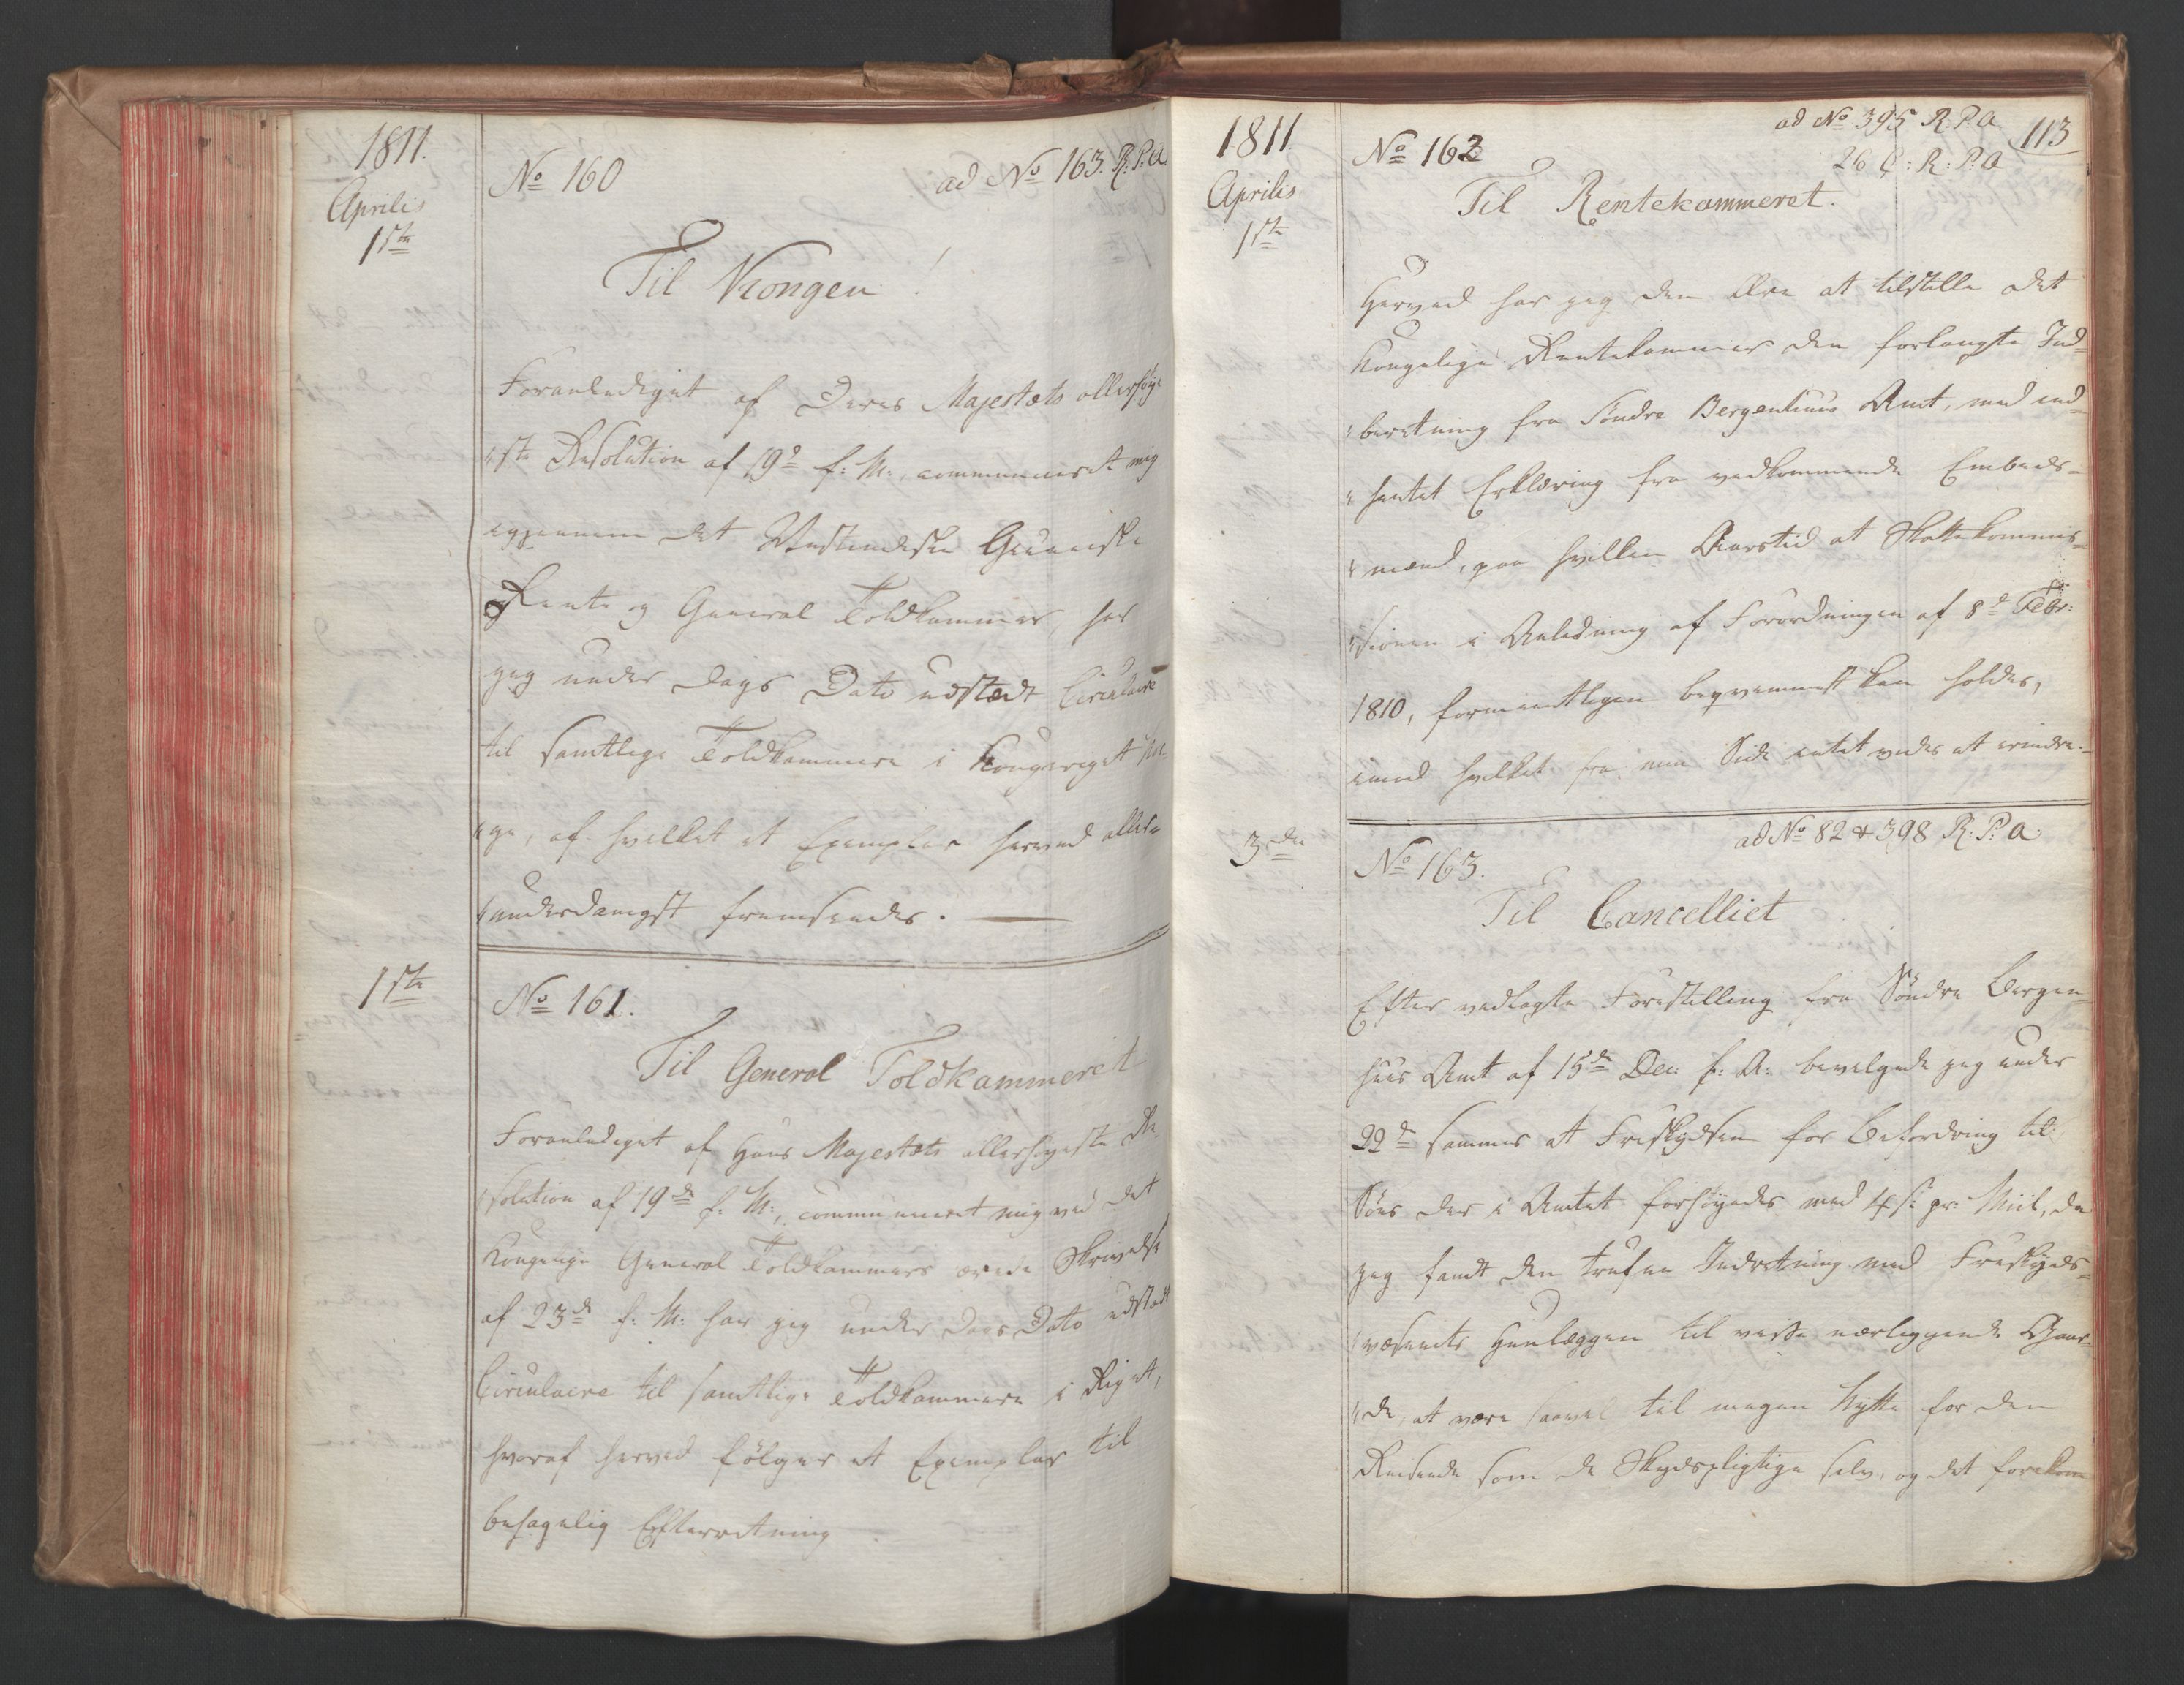 1811.
Aprilis
1ste
No 160
ad No 163. R. P. A.
Til Kongen!
Foranlediget af Deres Majestæts allerhøye
ste Resolution af 19de f: M:, communiceret mig
igjennem det Vestindiske Guineiske
Rente og General Toldkammer, har
jeg under Dags Dato udstædt Circulaire
til samtlige Toldkammere i Kongeriget Nor
ge, af hvilket et Exemplar herved aller-
underdanigst fremsendes.
1ste
No 161.
Til General Toldkammeret
Foranlediget af Hans Majestæts allerhøyeste Re
solution af 19de f: M:, communiceret mig ved det
Kongelige General Toldkammers ærede Skrivelse
af 23de f: M: har jeg under Dags Dato udstædt
Circulaire til samtlige Toldkammere i Riget,
hvoraf herved følger et Exemplar til
behagelig Efterretning
1811
Aprilis
1ste
No 162
ad No 395 R. P. A
26 C: R: P. A
113
Til Rentekammeret.
Herved har jeg den Ære at tilstille det
Kongelige Rentekammer den forlangte Ind-
beretning fra Søndre Bergenhuus Amt, med ind-
hentet Erklæring fra vedkommende Embeds-
mænd, paa hvilken Aarstid at Skattekommis-
sionen i Anledning af Forordningen af 8de Febr:
1810, formeentligen beqvemmest kan holdes,
imod hvilket fra min Side intet vides at erindre.
3die
No 163.
ad No 82 & 398 R: P: A
Til Cancelliet
Efter vedlagte Forestilling fra Søndre Bergen
huus Amt af 15de Dec: f: A: bevilgede jeg under
22de sammes at Friskydsen for Befordring til
Søes der i Amtet forhøyedes med 4 s: pr: Miil, da
jeg fandt den trufne Indretning med Friskyds-
væsenets Henlæggen til visse nærliggende Gaar-
de, at være saavel til megen Nytte for den
Reisende som de Skydspligtige selv, og det forekom